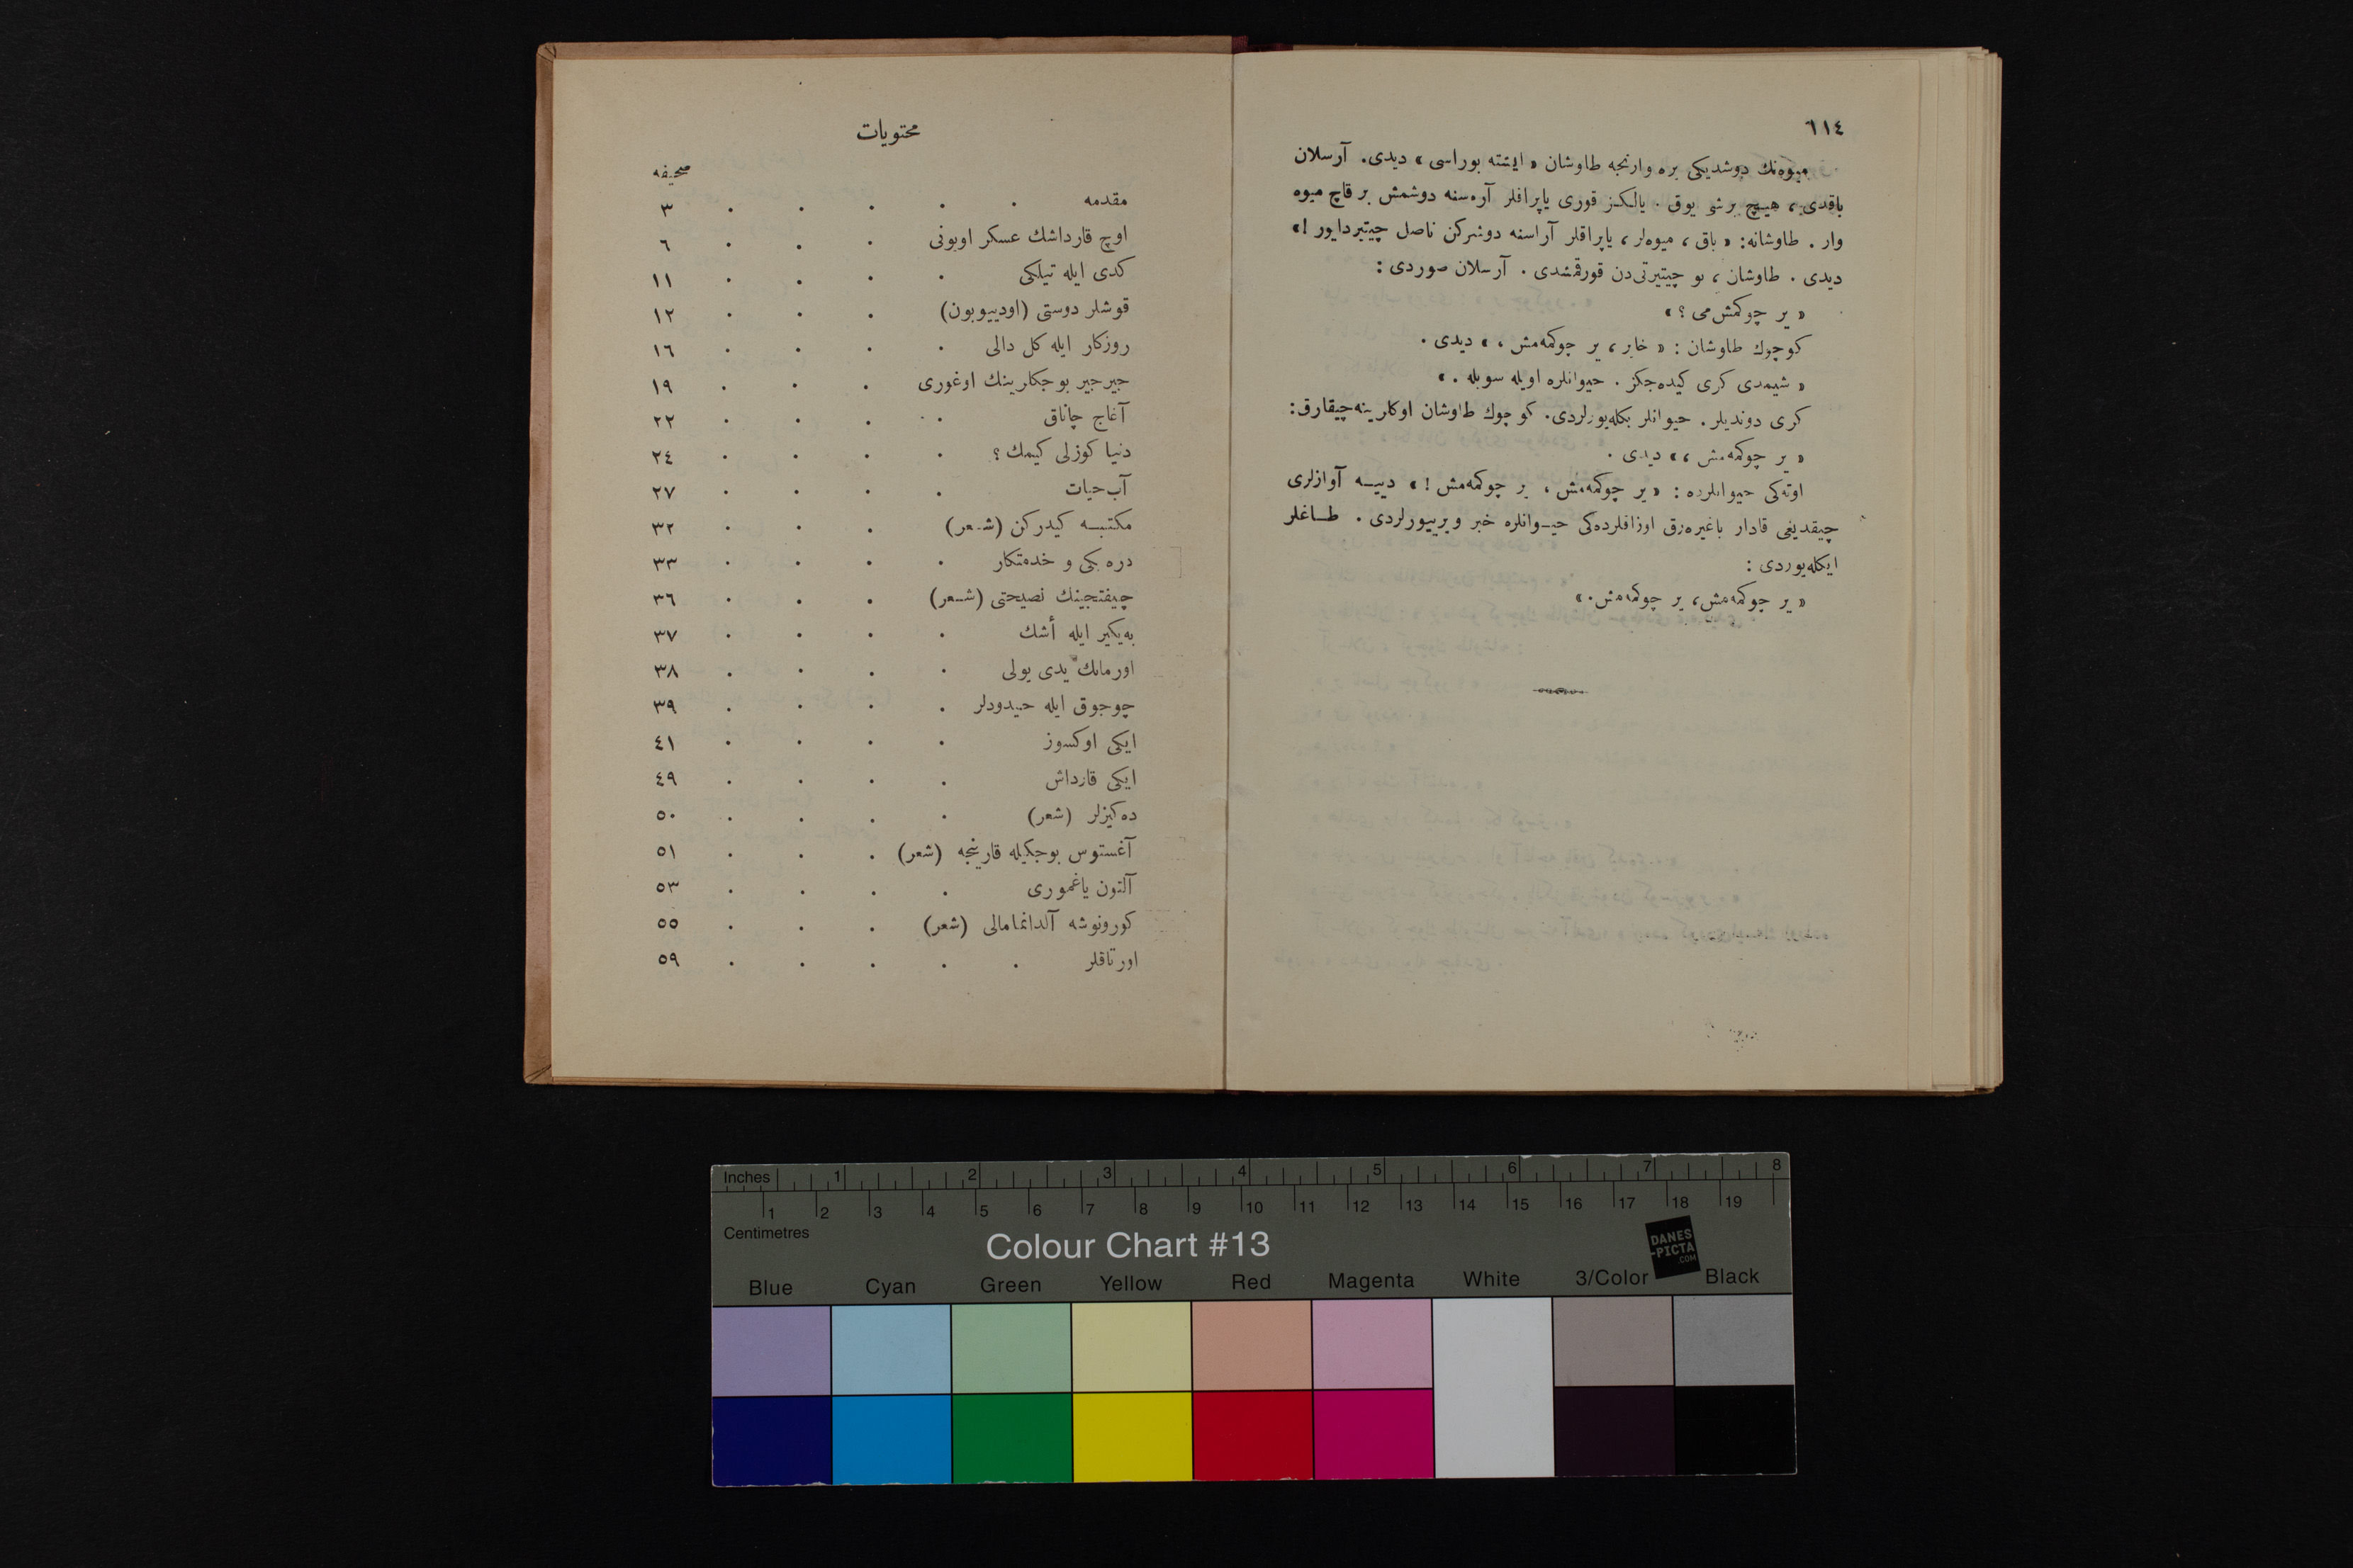 ٦١٤
میوه‌نك دوشدیکی یره وارنجه طاوشان « ایشته بوراسی » دیدی. آرسلان
باقدی، هیچ بر شی یوق . یالکز قوری یاپراقلر آره‌سنه دوشمش بر قاچ میوه
وار . طاوشانه: « باق ، میوه‌لر ، یاپراقلر آراسنه دوشرکن ناصل چیتیردایور !»
دیدی . طاوشان ، بو چیتیرتی‌دن قورقمشدی . آرسلان صوردی :
« یر چوکمش‌می ؟ »
کوچوك طاوشان : « خایر ، یر چوکمه‌مش ، » دیدی .
« شیمدی کری کیده‌جکز . حیوانلره اویله سویله . »
کری دوندیلر . حیوانلر بکله‌یورلردی. کوچوك طاوشان اوکلرینه چیقارق:
« یر چوکمه‌مش ، » دیدی .
اوته‌کی حیوانلرده : « یر چوکمه‌مش ، یر چوکمه‌مش ! » دییه آوازلری
چیقدیغی قادار باغیره‌رق اوزاقلرده‌کی حیوانلره خبر ویرییورلردی . طاغلر
ایکله‌یوردی :
« یر چوکمه‌مش، یر چوکمه‌مش. »
محتویات
صحیفه
مقدمه . . . . . ٣
اوچ قارداشك عسکر اویونی . . . ٦
کدی ایله تیلکی . . . . ١١
قوشلر دوستی (اودیبوبون) . . . ١٢
روزکار ایله کل دالی . . . . ١٦
جیرجیر بوجکلرینك اوغوری . . . ١٩
آغاج چاناق . . . . ٢٢
دنیا کوزلی کیمك ؟ . . . . ٢٤
آب‌حیات . . . . ٢٧
مکتبه کیدرکن (شعر) . . . ٣٢
دره بکی و خدمتکار . . . . ٣٣
چیفتجینك نصیحتی (شعر) . . . ٣٦
به‌یکیر ایله أشك . . . . ٣٧
اورمانك یدی یولی . . . . ٣٨
چوجوق ایله حیدودلر . . . . ٣٩
ایکی اوکسوز . . . . ٤١
ایکی قارداش . . . . ٤٩
ده‌کیزلر (شعر) . . . . ٥٠
آغستوس بوجکیله قارینجه (شعر) . . . ٥١
آلتون یاغموری . . . . ٥٣
کورونوشه آلدانمامالی (شعر) . . . ٥٥
اورتاقلر . . . . . ٥٩
Inches 1 2 3 4 5 6 7 8
1 2 3 4 5 6 7 8 9 10 11 12 13 14 15 16 17 18 19
Centimetres
Colour Chart #13
DANES
-PICTA
.COM
Blue Cyan Green Yellow Red Magenta White 3/Color Black